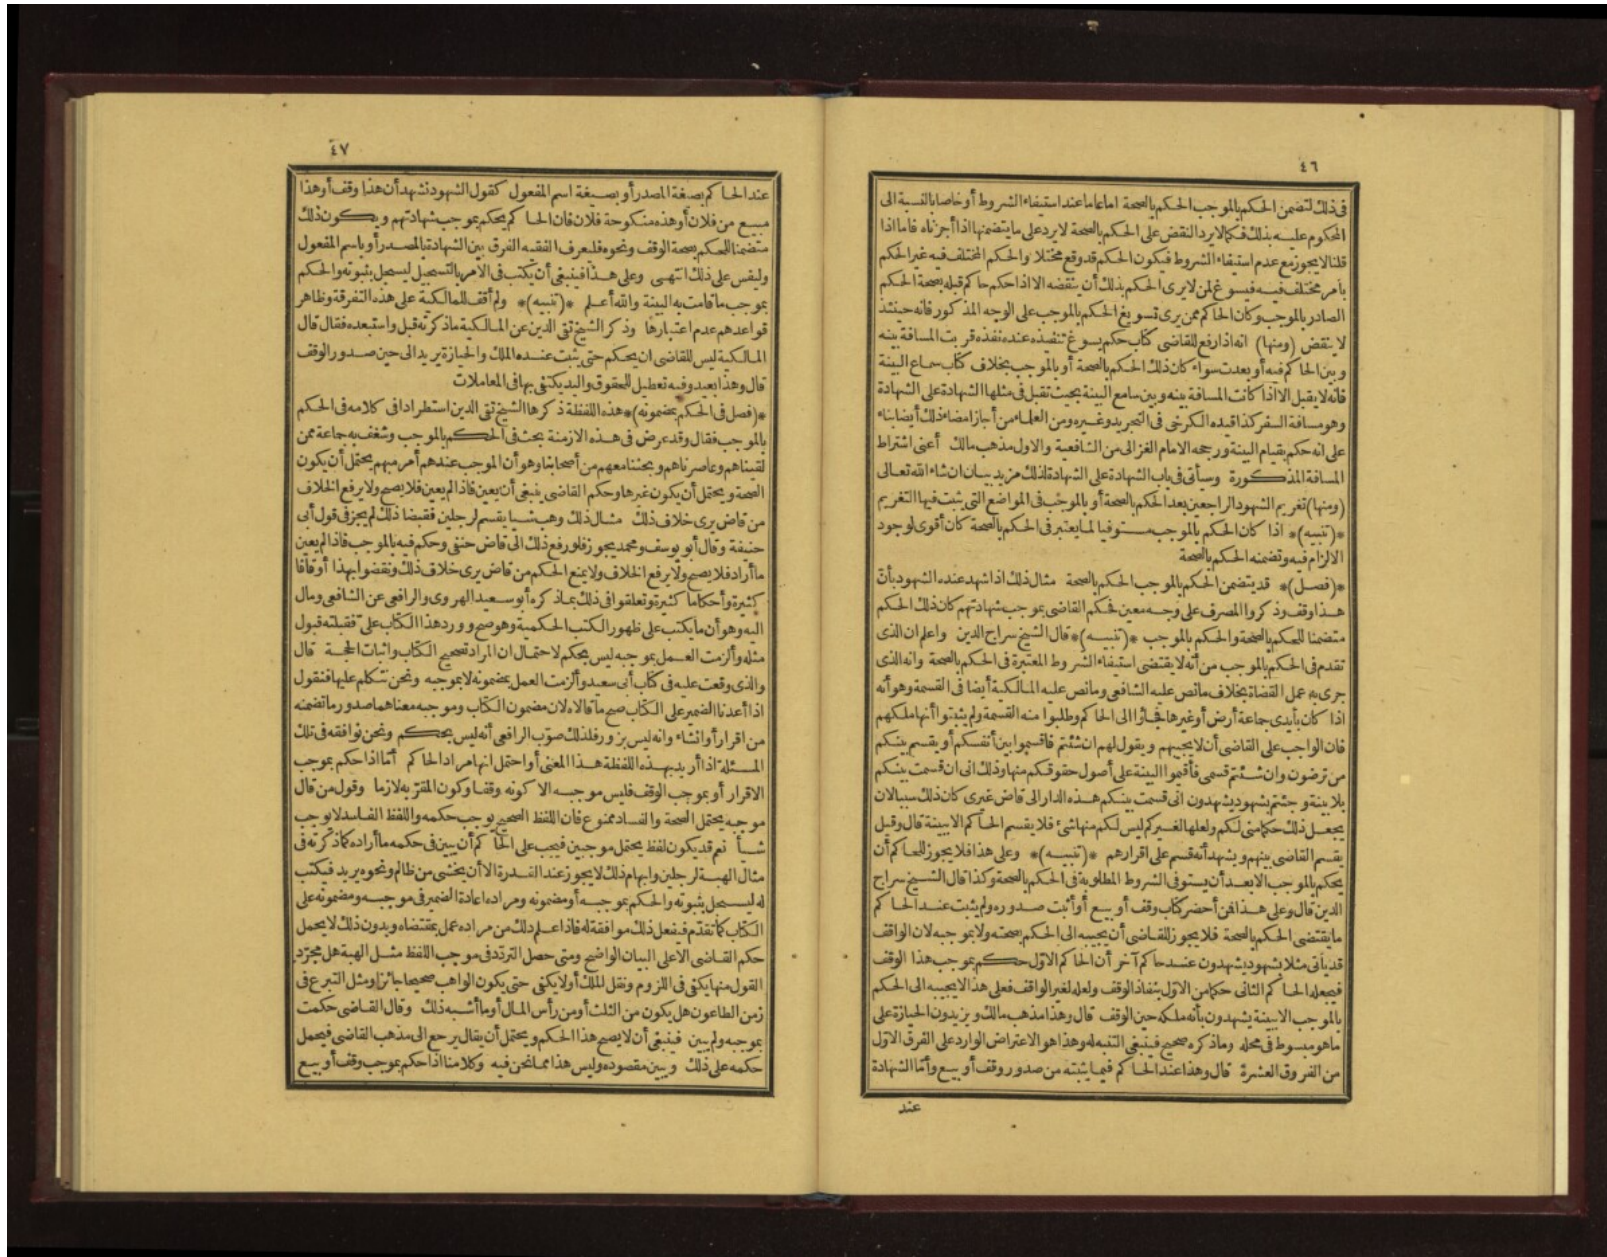 ٤٦
فى ذلك لتضمن الحكم بالموجب الحكم بالصحة اما عاما عند استيفاء الشروط أو خاصا بالنسبة الى
المحكوم عليه بذلك فكما لا يرد النقض على الحكم بالصحة لا يرد على ما يتضمنها اذا أجزناه فاما اذا
قلنا لا يجوز مع عدم استيفاء الشروط فيكون الحكم قد وقع مختلا والحكم المختلف فيه غير الحكم
بأمر مختلف فيه فيسوغ لمن لا يرى الحكم بذلك أن ينقضه الا اذا حكم حاكم قبله بصحة الحكم
الصادر بالموجب وكان الحاكم ممن يرى تسويغ الحكم بالموجب على الوجه المذكور فانه حينئذ
لا ينقض (ومنها) انه اذا رفع للقاضى كتاب حكم يسوغ تنفيذه عنده نفذه قربت المسافة بينه
وبين الحاكم فيه أو بعدت سواء كان ذلك الحكم بالصحة أو بالموجب بخلاف كتاب سماع البينة
فانه لا يقبل الا اذا كانت المسافة بينه وبين سامع البينة بحيث تقبل فى مثلها الشهادة على الشهادة
وهو مسافة السفر كذا قيده الكرخى فى التجريد وغيره ومن العلماء من أجاز امضاء ذلك أيضا بناء
على انه حكم بقيام البينة ورجحه الامام الغزالى من الشافعية والاول مذهب مالك أعنى اشتراط
المسافة المذكورة وسيأتى فى باب الشهادة على الشهادة لذلك مزيد بيان ان شاء الله تعالى
(ومنها) تغريم الشهود الراجعين بعد الحكم بالصحة أو بالموجب فى المواضع التى يثبت فيها التغريم
*(تنبيه)* اذا كان الحكم بالموجب مستوفيا لما يعتبر فى الحكم بالصحة كان أقوى لوجود
الالزام فيه وتضمنه الحكم بالصحة
*(فصل)* قد يتضمن الحكم بالموجب الحكم بالصحة مثال ذلك اذا شهد عنده الشهود بأن
هذا وقف وذكروا المصرف على وجه معين فحكم القاضى بموجب شهادتهم كان ذلك الحكم
متضمنا للحكم بالصحة والحكم بالموجب *(تنبيه)* قال الشيخ سراج الدين واعلم ان الذى
تقدم فى الحكم بالموجب من أنه لا يقتضى استيفاء الشروط المعتبرة فى الحكم بالصحة وانه الذى
جرى به عمل القضاة بخلاف ما نص عليه الشافعى وما نص عليه المالكية أيضا فى القسمة وهو أنه
اذا كان بأيدى جماعة أرض أو غيرها فجاؤا الى الحاكم وطلبوا منه القسمة ولم يثبتوا أنها ملكهم
فان الواجب على القاضى أن لا يجيبهم ويقول لهم ان شئتم فاقسموا بين أنفسكم أو يقسم بينكم
من ترضون وان شئتم قسمى فأقيموا البينة على أصول حقوقكم منها وذلك انى ان قسمت بينكم
بلا بينة وجئتم بشهود يشهدون انى قسمت بينكم هذه الدار الى قاض غيرى كان ذلك سببا لان
يجعل ذلك حكما منى لكم ولعلها لغيركم ليس لكم منها شئ فلا يقسم الحاكم الا ببينة قال وقيل
يقسم القاضى بينهم ويشهد أنه قسم على اقرارهم *(تنبيه)* وعلى هذا فلا يجوز للحاكم أن
يحكم بالموجب الا بعد أن يستوفى الشروط المطلوبة فى الحكم بالصحة وكذا قال الشيخ سراج
الدين قال وعلى هذا فمن أحضر كتاب وقف أو بيع أو أثبت صدوره ولم يثبت عند الحاكم
ما يقتضى الحكم بالصحة فلا يجوز للقاضى أن يجيبه الى الحكم بصحته ولا بموجبه لان الواقف
قد يأتى مثلا بشهود يشهدون عند حاكم آخر أن الحاكم الاول حكم بموجب هذا الوقف
فيجعله الحاكم الثانى حكما من الاول بنفاذ الوقف ولعله لغير الواقف فعلى هذا لا يجيبه الى الحكم
بالموجب الا ببينة يشهدون بأنه ملكه حين الوقف قال وهذا مذهب مالك ويزيدون الحيازة على
ما هو مبسوط فى محله وما ذكره صحيح فينبغى التنبه له وهذا هو الاعتراض الوارد على الفرق الاول
من الفروق العشرة قال وهذا عند الحاكم فيما يثبته من صدور وقف أو بيع وأما الشهادة
عند
٤٧
عند الحاكم بصيغة المصدر أو بصيغة اسم المفعول كقول الشهود نشهد أن هذا وقف أو هذا
مبيع من فلان أو هذه منكوحة فلان فان الحاكم يحكم بموجب شهادتهم ويكون ذلك
متضمنا للحكم بصحة الوقف ونحوه فليعرف الفقيه الفرق بين الشهادة بالمصدر أو باسم المفعول
وليقس على ذلك انتهى وعلى هذا فينبغى أن يكتب فى الامر بالتسجيل ليسجل بثبوته والحكم
بموجب ما قامت به البينة والله أعلم *(تنبيه)* ولم أقف للمالكية على هذه التفرقة وظاهر
قواعدهم عدم اعتبارها وذكر الشيخ تقى الدين عن المالكية ما ذكرته قبل واستبعده فقال قال
المالكية ليس للقاضى ان يحكم حتى يثبت عنده الملك والحيازة يريد الى حين صدور الوقف
قال وهذا بعيد وفيه تعطيل للحقوق واليد يكتفى بها فى المعاملات
*(فصل فى الحكم بمضمونه)* هذه اللفظة ذكرها الشيخ تقى الدين استطرادا فى كلامه فى الحكم
بالموجب فقال وقد عرض فى هذه الازمنة بحث فى الحكم بالموجب وشغف به جماعة ممن
لقيناهم وعاصرناهم وبحثنا معهم من أصحابنا وهو أن الموجب عندهم أمر مبهم يحتمل أن يكون
الصحة ويحتمل أن يكون غيرها وحكم القاضى ينبغى أن يعين فاذا لم يعين فلا يصح ولا يرفع الخلاف
من قاض يرى خلاف ذلك مثال ذلك وهب شيأ يقسم لرجلين فقبضا ذلك لم يجز فى قول أبى
حنيفة وقال أبو يوسف ومحمد يجوز فلو رفع ذلك الى قاض حنفى وحكم فيه بالموجب فاذا لم يعين
ما أراد فلا يصح ولا يرفع الخلاف ولا يمنع الحكم من قاض يرى خلاف ذلك ونقضوا بهذا أوقافا
كثيرة وأحكاما كثيرة وتعلقوا فى ذلك بما ذكره أبو سعيد الهروى والرافعى عن الشافعى ومال
اليه وهو أن ما يكتب على ظهور الكتب الحكمية وهو صح وورد هذا الكتاب على فقبلته قبول
مثله وألزمت العمل بموجبه ليس بحكم لاحتمال ان المراد تصحيح الكتاب واثبات الحجة قال
والذى وقعت عليه فى كتاب أبى سعيد وألزمت العمل بمضمونه لا بموجبه ونحن نتكلم عليها فنقول
اذا أعدنا الضمير على الكتاب صح ما قالاه لان مضمون الكتاب وموجبه معناهما صدور ما تضمنه
من اقرار أو انشاء وانه ليس بزور فلذلك صوب الرافعى أنه ليس بحكم ونحن نوافقه فى تلك
المسئلة اذا أريد بهذه اللفظة هذا المعنى أو احتمل انها مراد الحاكم أما اذا حكم بموجب
الاقرار أو بموجب الوقف فليس موجبه الا كونه وقفا وكون المقر به لازما وقول من قال
موجبه يحتمل الصحة والفساد ممنوع فان اللفظ الصحيح يوجب حكمه واللفظ الفاسد لا يوجب
شيأ نعم قد يكون لفظ يحتمل موجبين فيجب على الحاكم أن يبين فى حكمه ما أراده كما ذكرته فى
مثال الهبة لرجلين وابهام ذلك لا يجوز عند القدرة الا أن يخشى من ظالم ونحوه يريد فيكتب
له ليسجل بثبوته والحكم بموجبه أو مضمونه ومراده اعادة الضمير فى موجبه ومضمونه على
الكتاب كما تقدم فيفعل ذلك موافقة له فاذا علم ذلك من مراده عمل بمقتضاه وبدون ذلك لا يحمل
حكم القاضى الا على البيان الواضح ومتى حصل التردد فى موجب اللفظ مثل الهبة هل مجرد
القول منها يكفى فى اللزوم ونقل الملك أو لا يكفى حتى يكون الواهب صحيحا جائزا ومثل التبرع فى
زمن الطاعون هل يكون من الثلث أو من رأس المال أو ما أشبه ذلك وقال القاضى حكمت
بموجبه ولم يبين فينبغى أن لا يصح هذا الحكم ويحتمل أن يقال يرجع الى مذهب القاضى فيحمل
حكمه على ذلك ويبين مقصوده وليس هذا مما نحن فيه وكلامنا اذا حكم بموجب وقف أو بيع